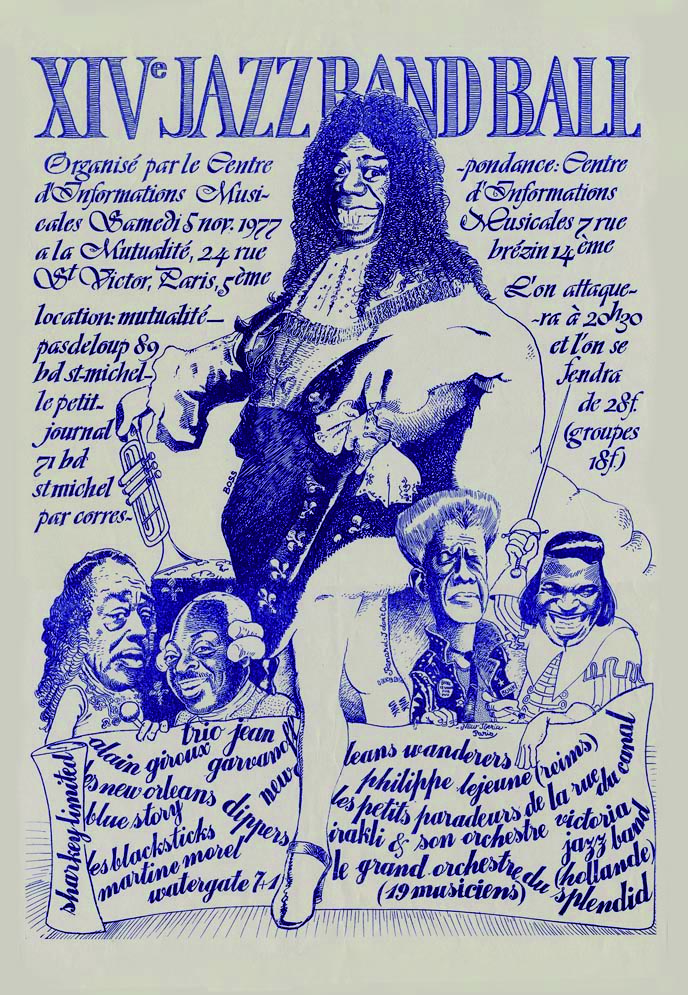 XIVe JAZZ BAND BALL
Organisé par le Centre
d'Informations Musi-
cales Samedi 5 nov. 1977
a la Mutualité, 24 rue
St Victor, Paris, 5ème
location: mutualité—
pasdeloup 89
bd st-michel-
le petit-
journal
71 bd
st michel
par corres-
-pondance: Centre
d'Informations
Musicales 7 rue
brézin 14ème
L'on attaque-
-ra à 20h30
et l'on se
fendra
de 28f.
(groupes
18f.)
BOSS
sharkey-limited
alain giroux
trio jean
garvanoff
les new orleans
blue story
dippers
new-
les blacksticks
martine morel
watergate 7+1
leans wanderers
philippe lejeune (reims)
les petits paradeurs de la rue
du canal
irakli & son orchestre
victoria
jazz band
(hollande)
le grand orchestre du
splendid
(19 musiciens)